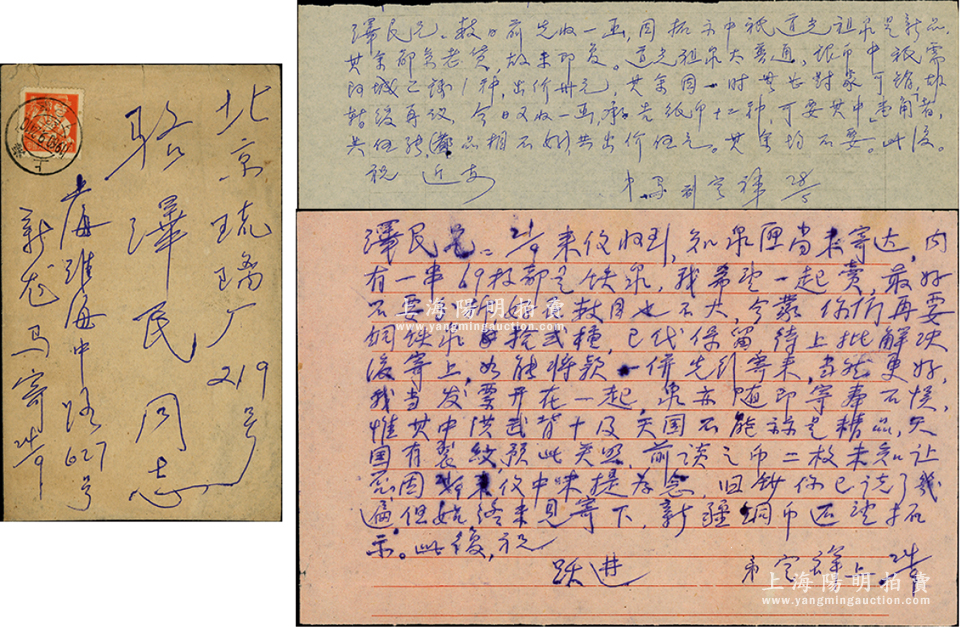 北京琉璃厂219号
骆泽民同志
上海淮海中路627号
新龙 马寄 24/9
泽民兄：数日前先收一函，因拓示中祇道光祖泉是新品，
其余都是老货，故未即复。道光祖泉太普通，银币中祇需
阿城二钱1种，出价卅元，其余因一时
暂后再谈，今日又收一函，纸币十二种，可要其中壹角者，
共伍张，品相不好共出价伍元。其余均不要。此复。
祝 近安
弟 马定祥 28/5
泽民兄：21/9来仪收到，知泉匣尚未寄达，内
有一串69枚都是铁泉，我希望一起卖，最好
不要 数目也不大，今蒙你行再要
铜铁泉 拾贰种，已代保留，待上批解决
后寄上，如能将款一并先行寄来，当然更好，
我当发票开在一起，泉亦随即寄奉不悞，
惟其中洪武背十及天国不能称是精品，天
国有裂纹预此关照，前谈之币二枚未知让
否因 来仪中未提为念，旧钞你已说了几
遍但始终未见寄下，新疆铜币还望拓
示。此复，祝
跃进
弟定祥上 24/9
上海陽明拍賣
www.yangmingauction.com
上海陽明拍賣
www.yangmingauction.com